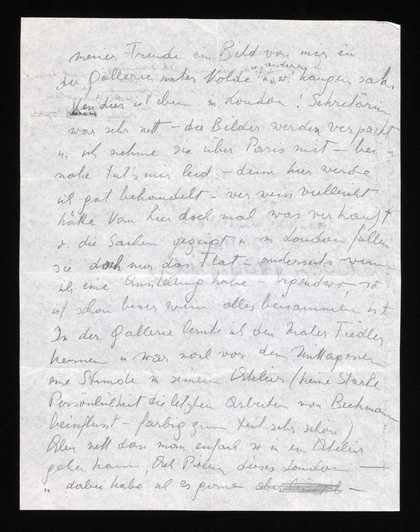 meiner Freude ein Bild von mir in
der Gallerie unter Nolde u. anderen hängen sah.
ist eben in London! Sekretärin
war sehr nett – die Bilder werden verpackt
u. ich nehme sie über Paris mit – bei-
nahe tut's mir leid – denn hier werde
ich gut behandelt – wer weiss vielleicht
hätte man hier doch mal was verkauft
u. die Sachen gezeigt u. in London füllen
sie doch nur das Flat – anderseits wenn
ich eine Ausstellung habe – irgendwo – so
ist schon besser wenn alles beisammen ist
In der Gallerie lernte ich den Maler Fiedler
kennen u. war noch vor dem Mittagessen
eine Stunde in seinem Atelier (keine starke
Persönlichkeit die letzten Arbeiten von Beckmann
beeinflusst – farbig zum Teil sehr schön)
Aber nett dass man einfach so in ein Atelier
gehen kann, dieses London –
dabei habe ich es gerne